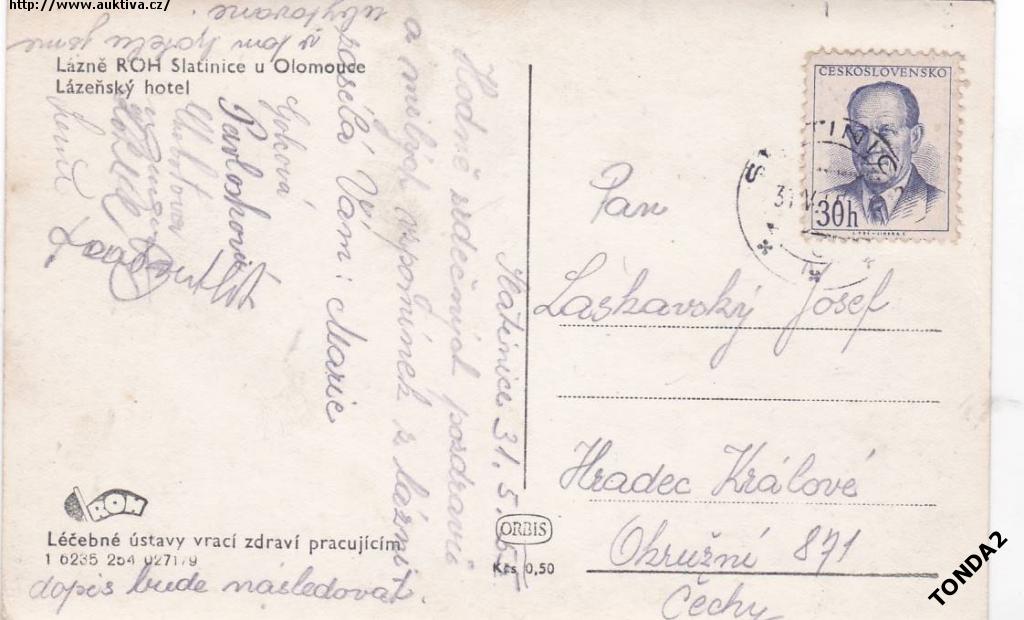 http://www.auktiva.cz/
v tom hotelu jsme
ubytovane.
Lázně ROH Slatinice u Olomouce
Lázeňský hotel
Slatinice 31. 5. 55
Hodně srdečných pozdravů
a milých vzpomínek z lázní
zasélá Vám: Marie
Pavlosková
ROH
Léčebné ústavy vrací zdraví pracujícím
1 6235 254 0271/9
dopis bude následovat.
ORBIS
Kčs 0,50
ČESKOSLOVENSKO
30h
Pan
Laskavský Josef
Hradec Králové
Okružní 871
Čechy
TONDA2